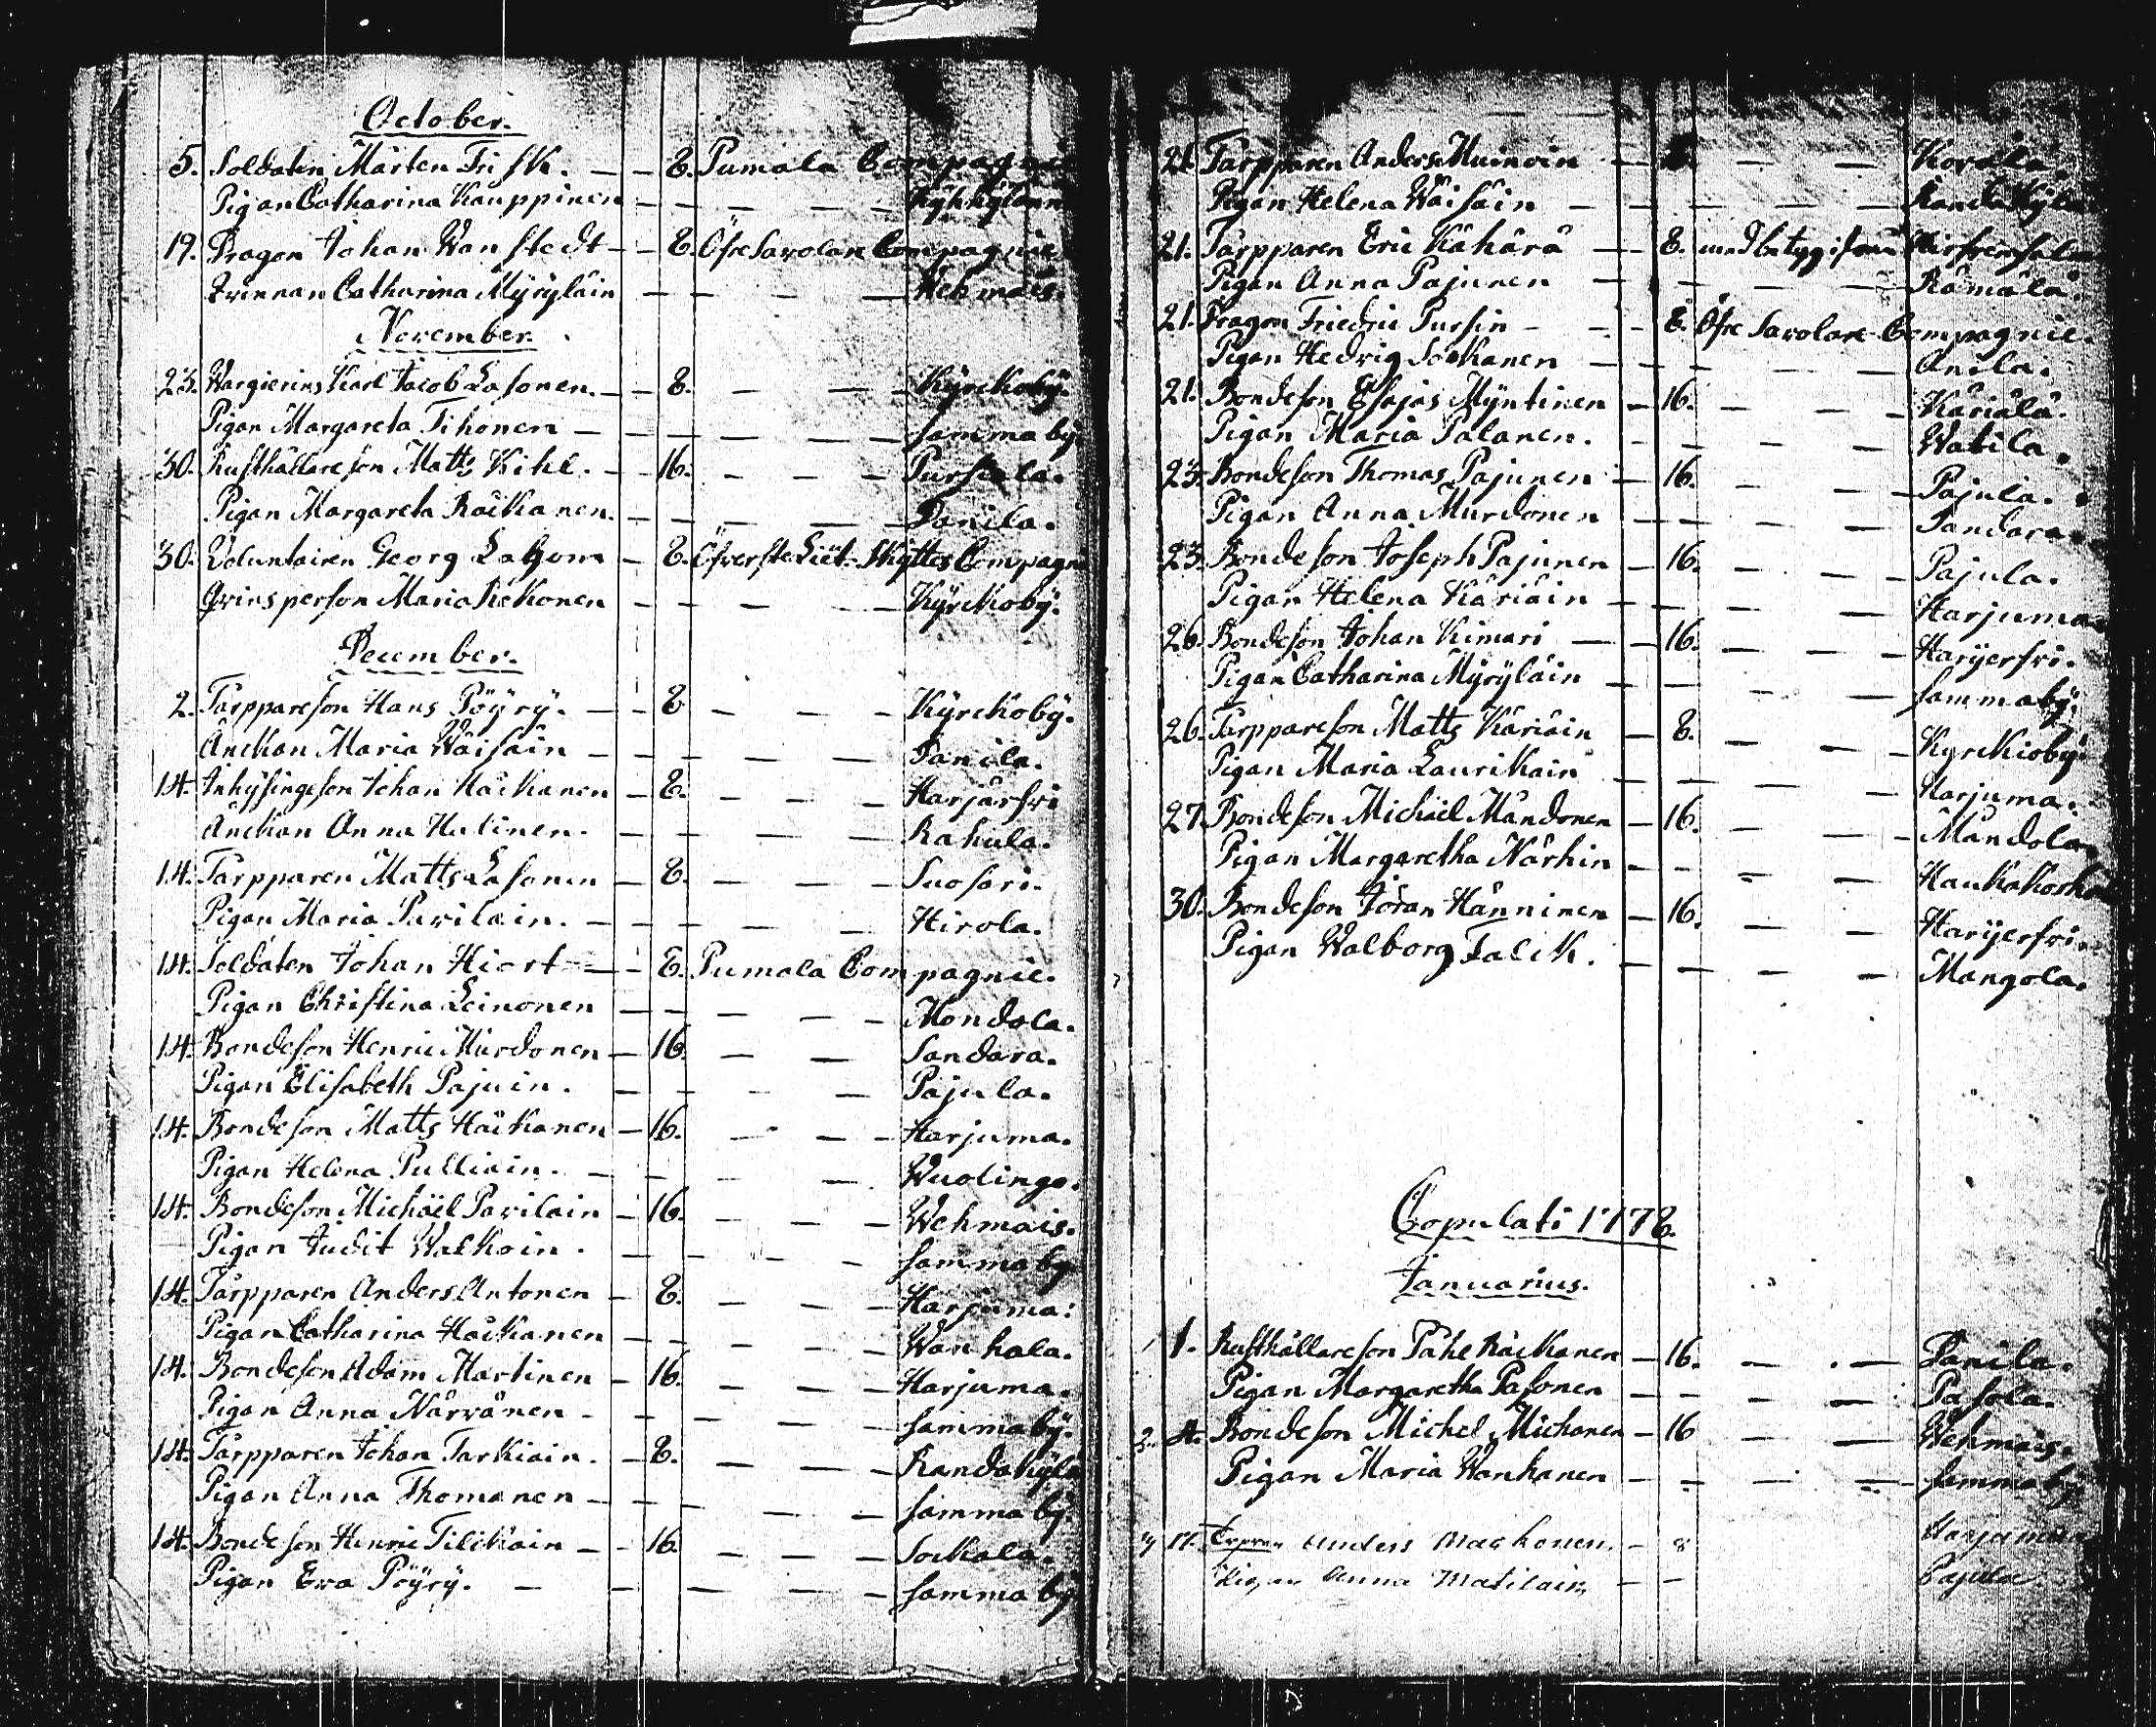 October.
5. Soldaten Mårten Frisk. — — 8. Pumala Compagnie
Pigan Catharina Kauppinen — — — —
19. Dragon Johan Wanstedt — — 8. Öfre Savolax Compagnie
Qvinnan Catharina Myryläin — — — — Wehmais.
November.
23. Karl Jacob Lasonen. — — 8. — — — Kyrckoby.
Pigan Margareta Tihonen — — — — — Samma by.
30. Rusthållareson Matts Kihl. — — 16. — — — Pursiala.
Pigan Margareta Räikänen. — — — — — Panila.
30. Voluntairen Georg — 8. Öfverste Liêt. Skyttes Compagn
Qvinsperson Maria Kekonen — — — — — Kyrckoby.
December.
2. Tårppareson Hans Pöyry. — — 8 — — — Kyrckoby.
Änckan Maria Wäisäin — — — — — Panila.
14. Inhysingeson Johan Häikänen — 8. — — — Harjärfvi
Änckan Anna Hulinen. — — — — — Rahula.
14. Tårpparen Matts Lasonen — 8. — — — Suosari.
Pigan Maria Pavilain. — — — — — Hirola.
14. Soldaten Johan Hiort — — 8. Pumala Compagnie.
Pigan Christina Leinonen — — — — — Mondola.
14. Bondeson Henric Murdonen — 16. — — — Sandara.
Pigan Elisabeth Pajuin. — — — — — Pajula.
14. Bondeson Matts Häikänen — 16. — — — Harjuma.
Pigan Helena Pulliain. — — — — — Wuolingo.
14. Bondeson Michäel Pavilain — 16. — — — Wehmais.
Pigan Judit Walkoin. — — — — — Samma by
14. Tårpparen Anders Antonen — 8. — — — Harjuma.
Pigan Catharina Häikänen — — — — — Wanhala.
14. Bondeson Adam Martinen — 16. — — — Harjuma.
Pigan Anna Närvänen — — — — — Samma by.
14. Tårpparen Johan Tarkiain. — 8. — — — Randakylä
Pigan Anna Thomanen — — — — — Samma by.
14. Bondeson Henric Tilikain — — 16. — — — Sockala.
Pigan Eva Pöyry. — — — — Samma by
21. Tårpparen Anders Muinoin — — — —
Pigan Helena Wäisäin — — — — — Randakylä
21. Tårpparen Eric Kähärä — — 8. med betyg ifrån
Pigan Anna Pajunen — — — — — Rämälä.
21. Dragon Friedric Pursin — — — 8. Öfre Savolax Compagnie.
Pigan Hedvig Sockanen — — — — — Anila.
21. Bondeson Esajas Myntinen — 16. — — — Käriälä.
Pigan Maria Palanen. — — — — Watila.
23. Bondeson Thomas Pajunen — 16. — — — Pajula.
Pigan Anna Murdonen — — — — — Sandara.
23. Bondeson Joseph Pajunen — 16. — — — Pajula.
Pigan Helena Käriäin — — — — — Harjuma.
26. Bondeson Johan Kimari — — 16. — — — Haryerfvi.
Pigan Catharina Myryläin — — — — Samma by.
26. Tårppareson Matts Käriäin — 8. — — — Kyrckioby.
Pigan Maria Laurikain — — — — — Harjuma.
27. Bondeson Michäel Mändonen — 16. — — — Mändola.
Pigan Margaretha Närhin — — — — — Haukakoski
30. Bondeson Jöran Hänninen — 16. — — — Haryerfvi.
Pigan Walborg Falck. — — — — Mangola.
Copulati 1778.
Januarius.
1. Rusthållareson Påhl Räikänen — 16. — — Panila.
Pigan Margaretha Pasonen — — — — Pasola.
2. 4. Bondeson Michel Mickonen — 16 — — Wehmais.
Pigan Maria Wankanen — — — — Samma by
3 11. Anders Mackonen. — 8 Harjuma
Pigan Anna Matilain, — — Pajula.